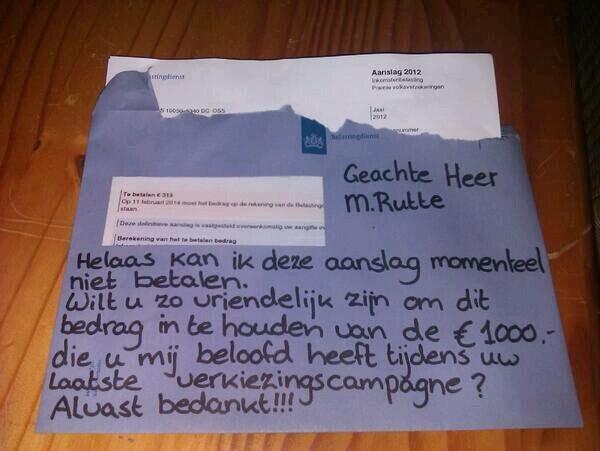 Belastingdienst
Aanslag 2012
Inkomstenbelasting
Premie volksverzekeringen
5340 DC OSS
Jaar
2012
Belastingdienst
Te betalen € 313
Op 11 februari 2014 moet het bedrag op de rekening van de Belasting
staan.
Deze definitieve aanslag is vastgesteld overeenkomstig uw aangifte
Berekening van het te betalen bedrag
Geachte Heer
M.Rutte
Helaas kan ik deze aanslag momenteel
niet betalen.
Wilt u zo vriendelijk zijn om dit
bedrag in te houden van de € 1000.-
die u mij beloofd heeft tijdens uw
laatste verkiezingscampagne?
Alvast bedankt!!!